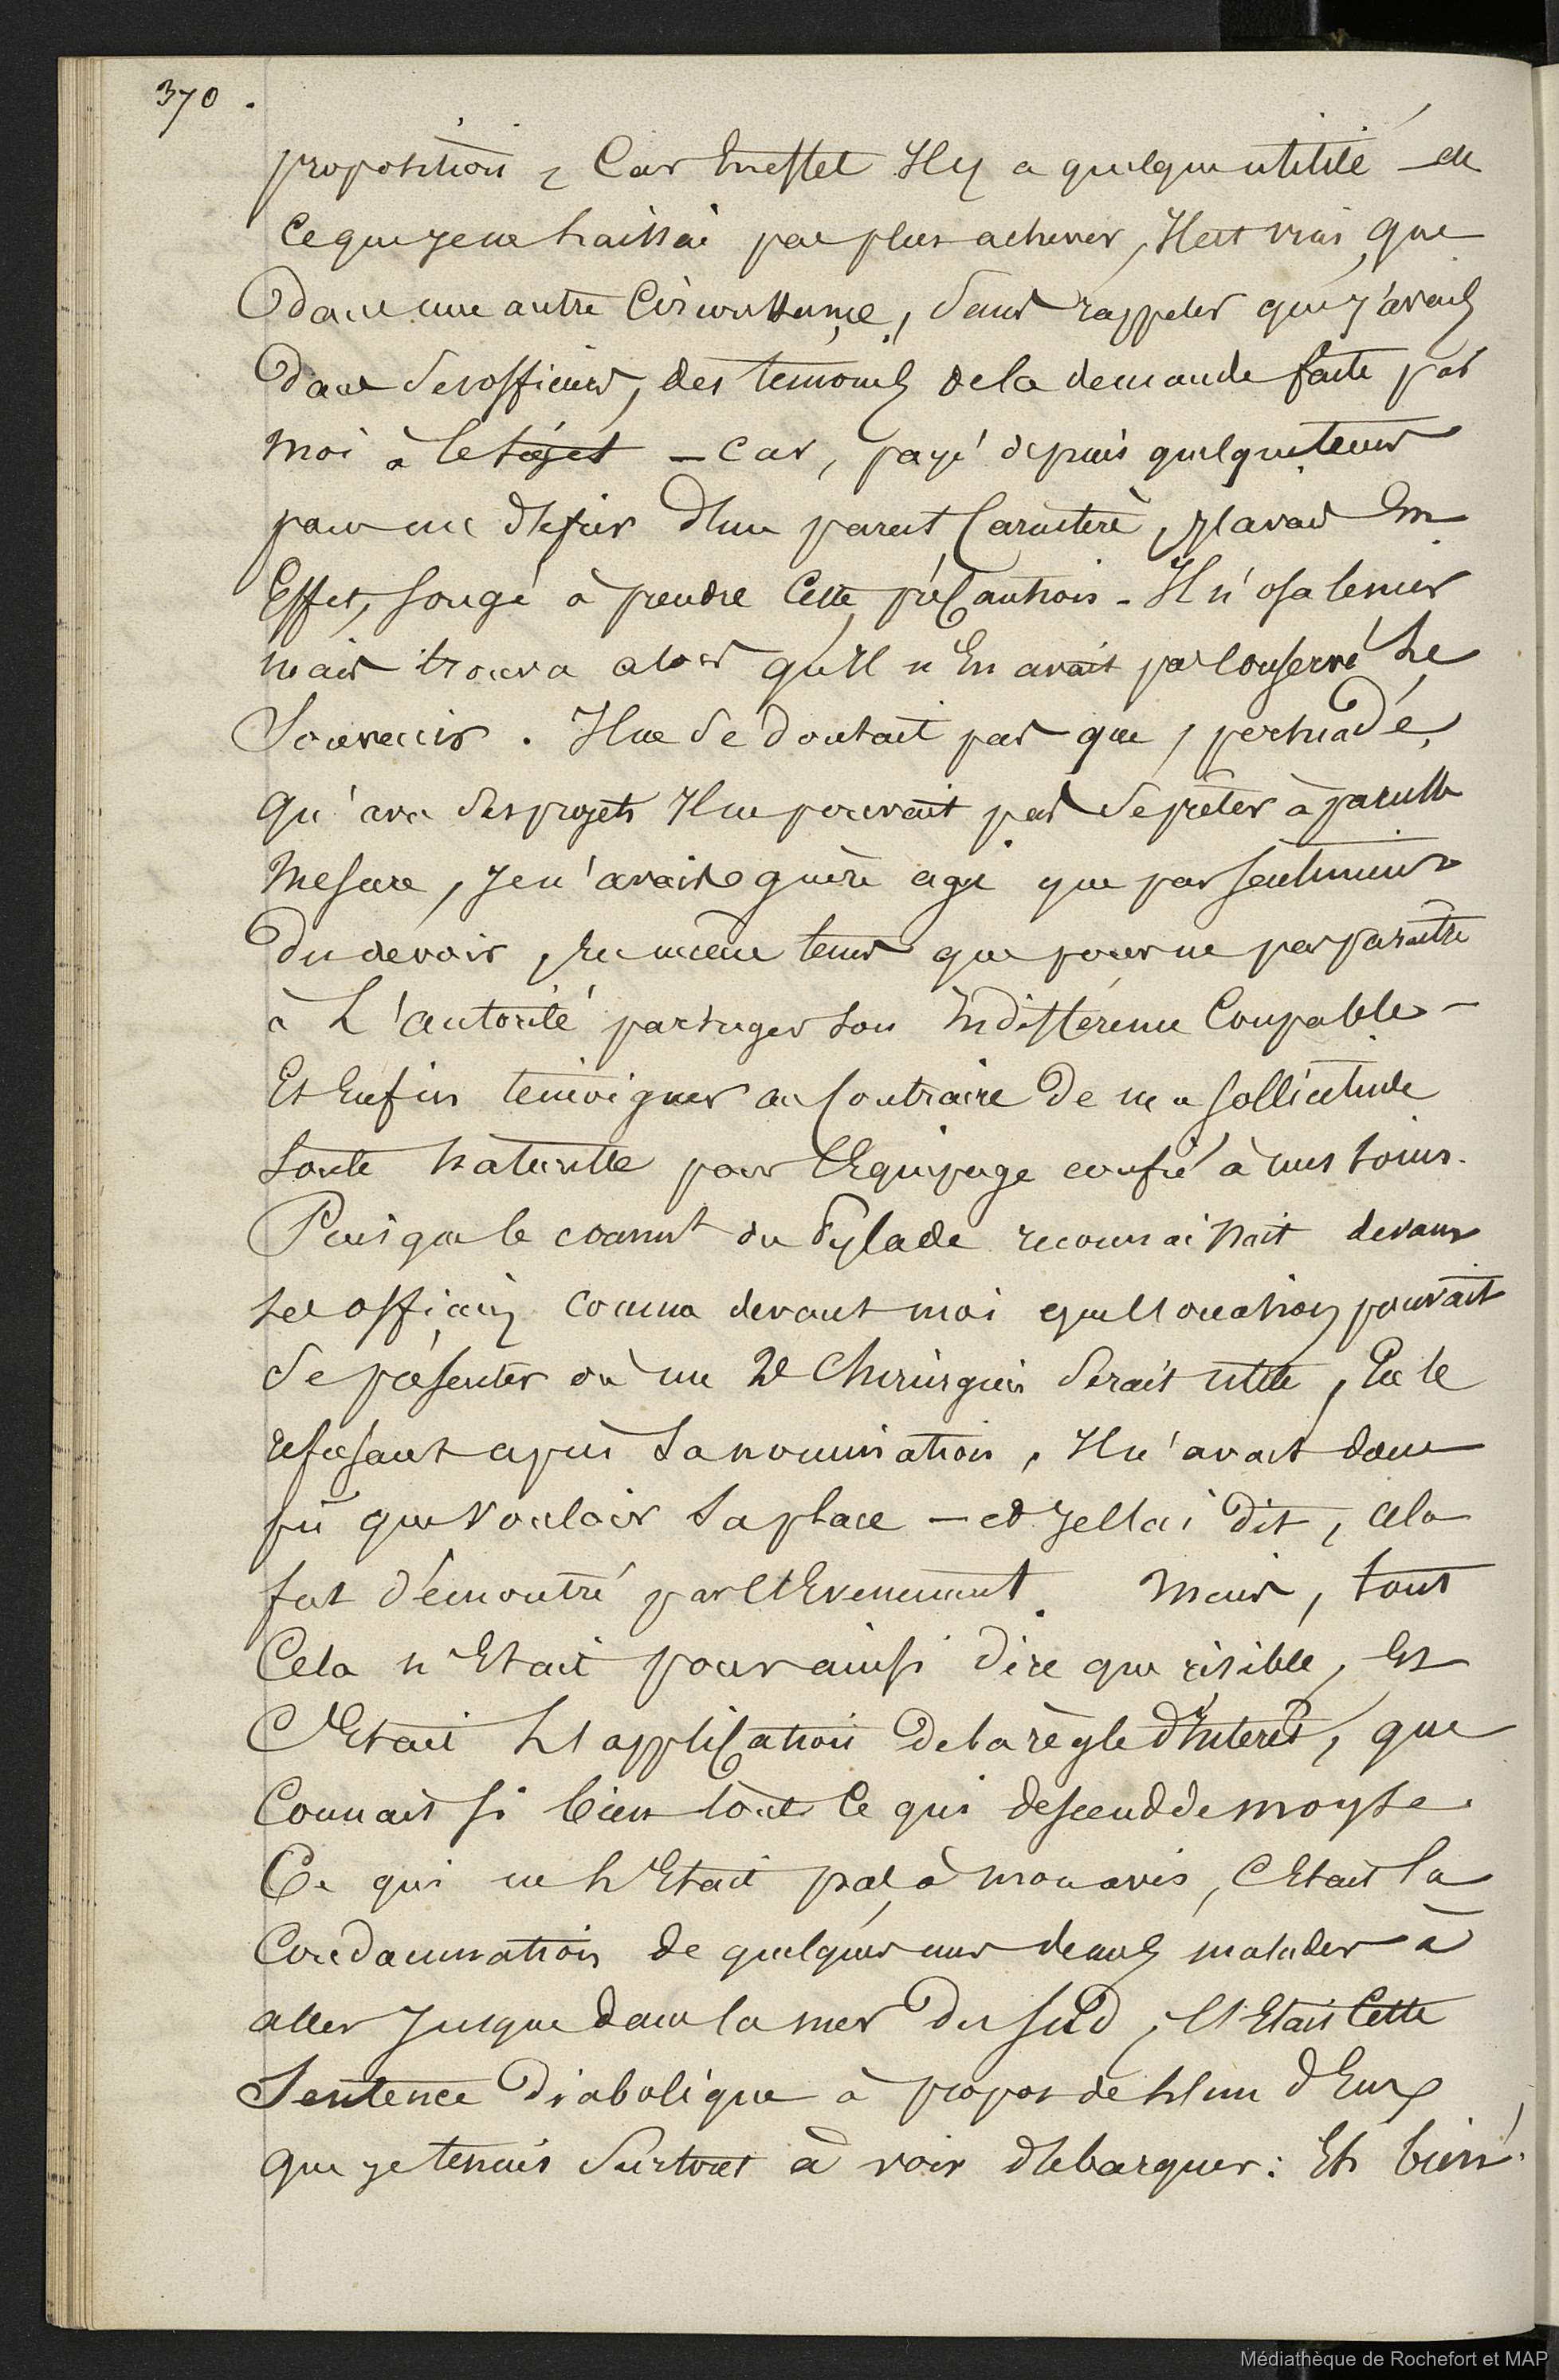 370.
proposition, Car En effet Il y a quelque utilité en
Ce que je ne haïssai pas plus achever, Il est vrai, que
Dans une autre Circonstance, sans rappeler que j'avais
Dans ses officiers, des temoins de la demande faite par
moi à ce sujet — Car, payé depuis quelque tems
pour me defier D'un pareil Caractère, j'avais En
Effet, songé à prendre Cette préCaution - Il n'osa le nier
mais trouva alors qu'Il n'En avait pas Conservé Le
Souvenir. Il ne se doutait pas que, persuadé,
qu'avec ses projets Il ne pouvait pas se prêter à pareille
Mesure, Je n'avais guère agi que par sentiment
Du devoir, En même tems que pour ne pas paraitre
à L'autorité partager son Indifférence Coupable -
Et Enfin témoigner au Contraire De ma sollicitude
toute naturelle pour l'Equipage confié à mes soins.
Puisque le commt du Pylade reconnaissait devant
ses officiers comme devant moi que l'occasion pouvait
se présenter où un 2e Chirurgien serait utile, En le
refusant après sa nomination, Il n'avait donc
pû que Vouloir sa place — et je l'ai dit, cela
fut démontré par l'Evenement. Mais, tout
Cela n'Etait pour ainsi dire que risible, Et
C'Etait L'appliCation De la règle d'Interêt, que
Connait si bien tout Ce qui descend de moyse.
Ce qui ne l'Etait pas, à mon avis, C'Etait la
Condamnation de quelques uns de nos malades à
aller Jusque dans la mer Du Sud, C'Etait Cette
Sentence Diabolique à propos de L'un d'Eux
que je tenais Surtout à voir débarquer: Eh bien
Médiathèque de Rochefort et MAP